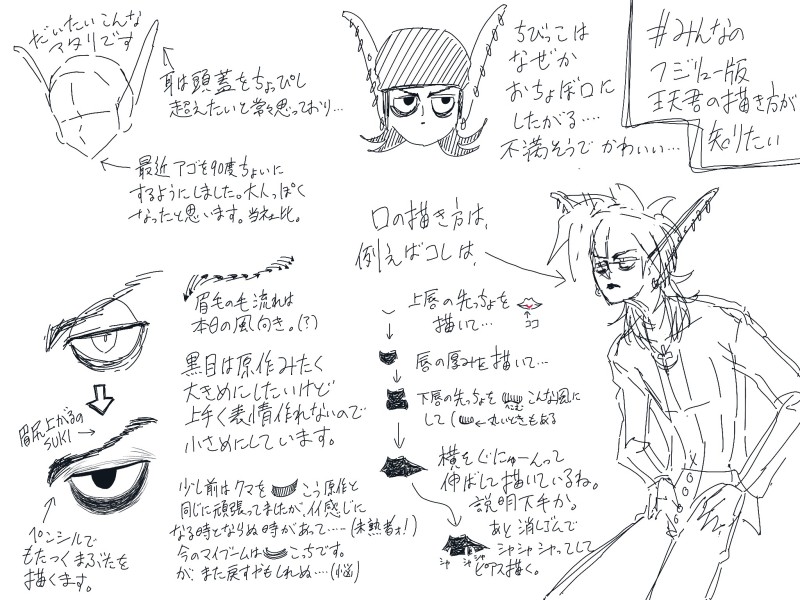 だいたいこんな
アタリです
耳は頭蓋をちょっぴし
超えたいと常々思っており…
最近アゴを90度ちょいに
するようにしました。大人っぽく
なったと思います。当社比。
ちびっこは
なぜか
おちょぼ口に
したがる…
不満そうでかわいい…
#みんなの
フジリュー版
王天君の描き方が
知りたい
口の描き方は、
例えばコレは、
上唇の先っちょを
描いて…
ココ
唇の厚みを描いて…
下唇の先っちょを こんな風に
へこむ
して( ←丸いときもある
横をぐにゅーんって
伸ばして描いているね。
説明下手か。
あと消しゴムで
シャシャシャッてして
ピアス描く。
シャ シャ シャ
眉毛の毛流れは
本日の風向き。(?)
黒目は原作みたく
大きめにしたいけど
上手く表情作れないので
小さめにしています。
眉尻上がるの
SUKI→
ペンシルで
もたつくまぶたを
描くます。
少し前はクマを こう原作と
同じに頑張ってましたが、イイ感じに
なる時とならぬ時があって……(未熟者ォ!)
今のマイブームは こっちです。
が、また戻すやもしれぬ…(悩)